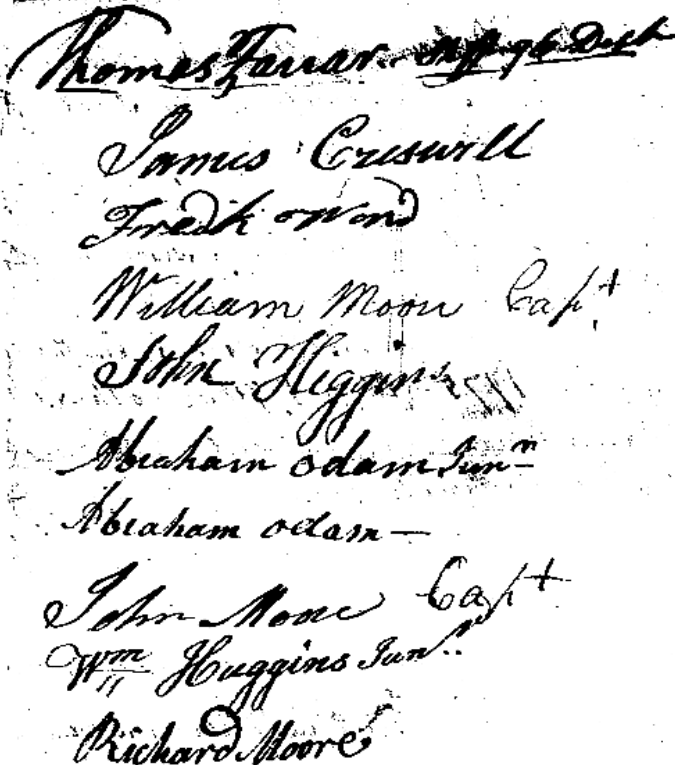 Thomas Farrar Shff 96 Dist
James Criswell
Fredk Ward
William Moore Capt
John Higgins
Abraham Odam Junr
Abraham Odam
John Moore Capt
Wm Huggins Junr
Richard Moore